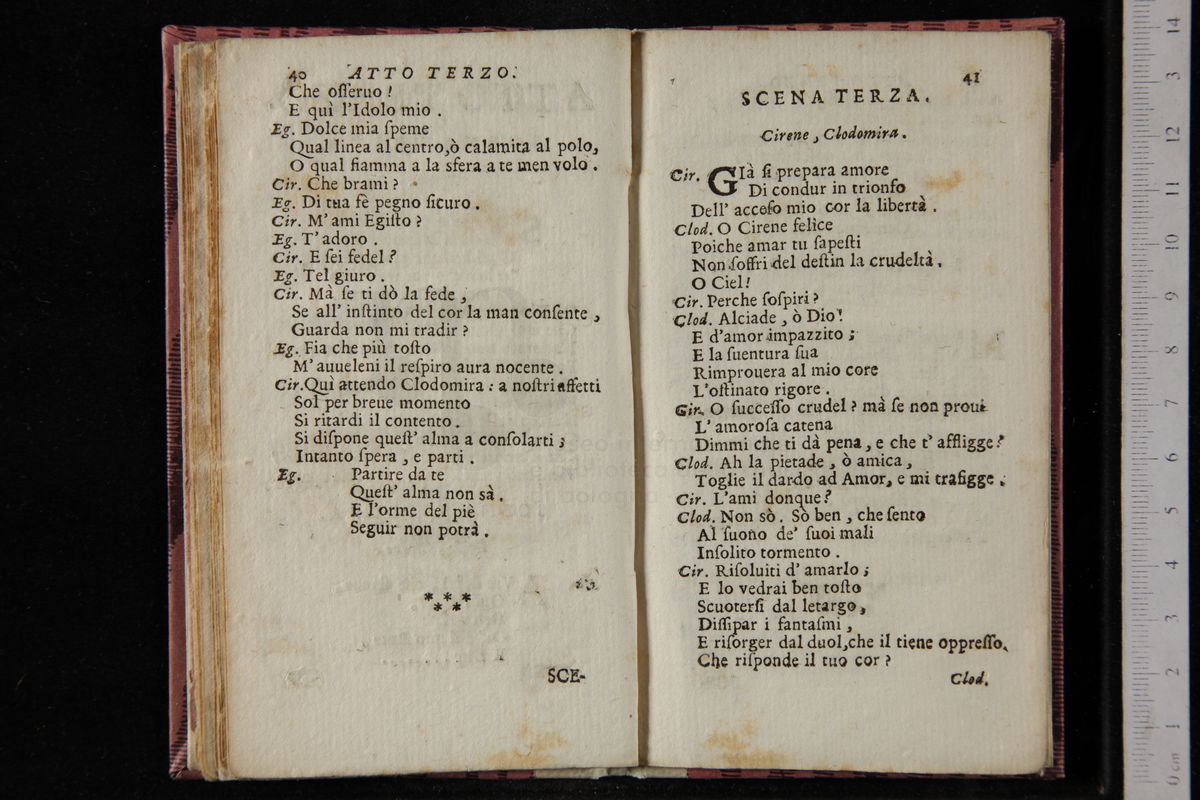 40 ATTO TERZO.
Che oſſeruo!
E quì l'Idolo mio.
Eg. Dolce mia ſpeme
Qual linea al centro, ò calamita al polo,
O qual fiamma a la sfera a te men volo.
Cir. Che brami?
Eg. Di tua fè pegno ſicuro.
Cir. M'ami Egiſto?
Eg. T'adoro.
Cir. E ſei fedel?
Eg. Tel giuro.
Cir. Mà ſe ti dò la fede,
Se all' inſtinto del cor la man conſente,
Guarda non mi tradir?
Eg. Fia che più toſto
M'auueleni il reſpiro aura nocente.
Cir. Quì attendo Clodomira: a noſtri affetti
Sol per breue momento
Si ritardi il contento.
Si diſpone queſt' alma a conſolarti;
Intanto ſpera, e parti.
Eg. Partire da te
Queſt' alma non sà.
E l'orme del piè
Seguir non potrà.
* * *
* *
SCE-
41
SCENA TERZA.
Cirene, Clodomira.
Cir. GIà ſi prepara amore
Di condur in trionfo
Dell' acceſo mio cor la libertà.
Clod. O Cirene felice
Poiche amar tu ſapeſti
Non ſoffri del deſtin la crudeltà.
O Ciel!
Cir. Perche ſoſpiri?
Clod. Alciade, ò Dio!
E d'amor impazzito;
E la ſuentura ſua
Rimprouera al mio core
L'oſtinato rigore.
Cir. O ſucceſſo crudel? mà ſe non proui
L' amoroſa catena
Dimmi che ti dà pena, e che t' affligge?
Clod. Ah la pietade, ò amica,
Toglie il dardo ad Amor, e mi trafigge.
Cir. L'ami donque?
Clod. Non sò. Sò ben, che ſento
Al ſuono de' ſuoi mali
Inſolito tormento.
Cir. Riſoluiti d' amarlo;
E lo vedrai ben toſto
Scuoterſi dal letargo,
Diſſipar i fantaſmi,
E riſorger dal duol, che il tiene oppreſſo.
Che riſponde il tuo cor?
Clod.
14
3
12
11
10
9
8
7
6
5
4
3
2
1
0 cm